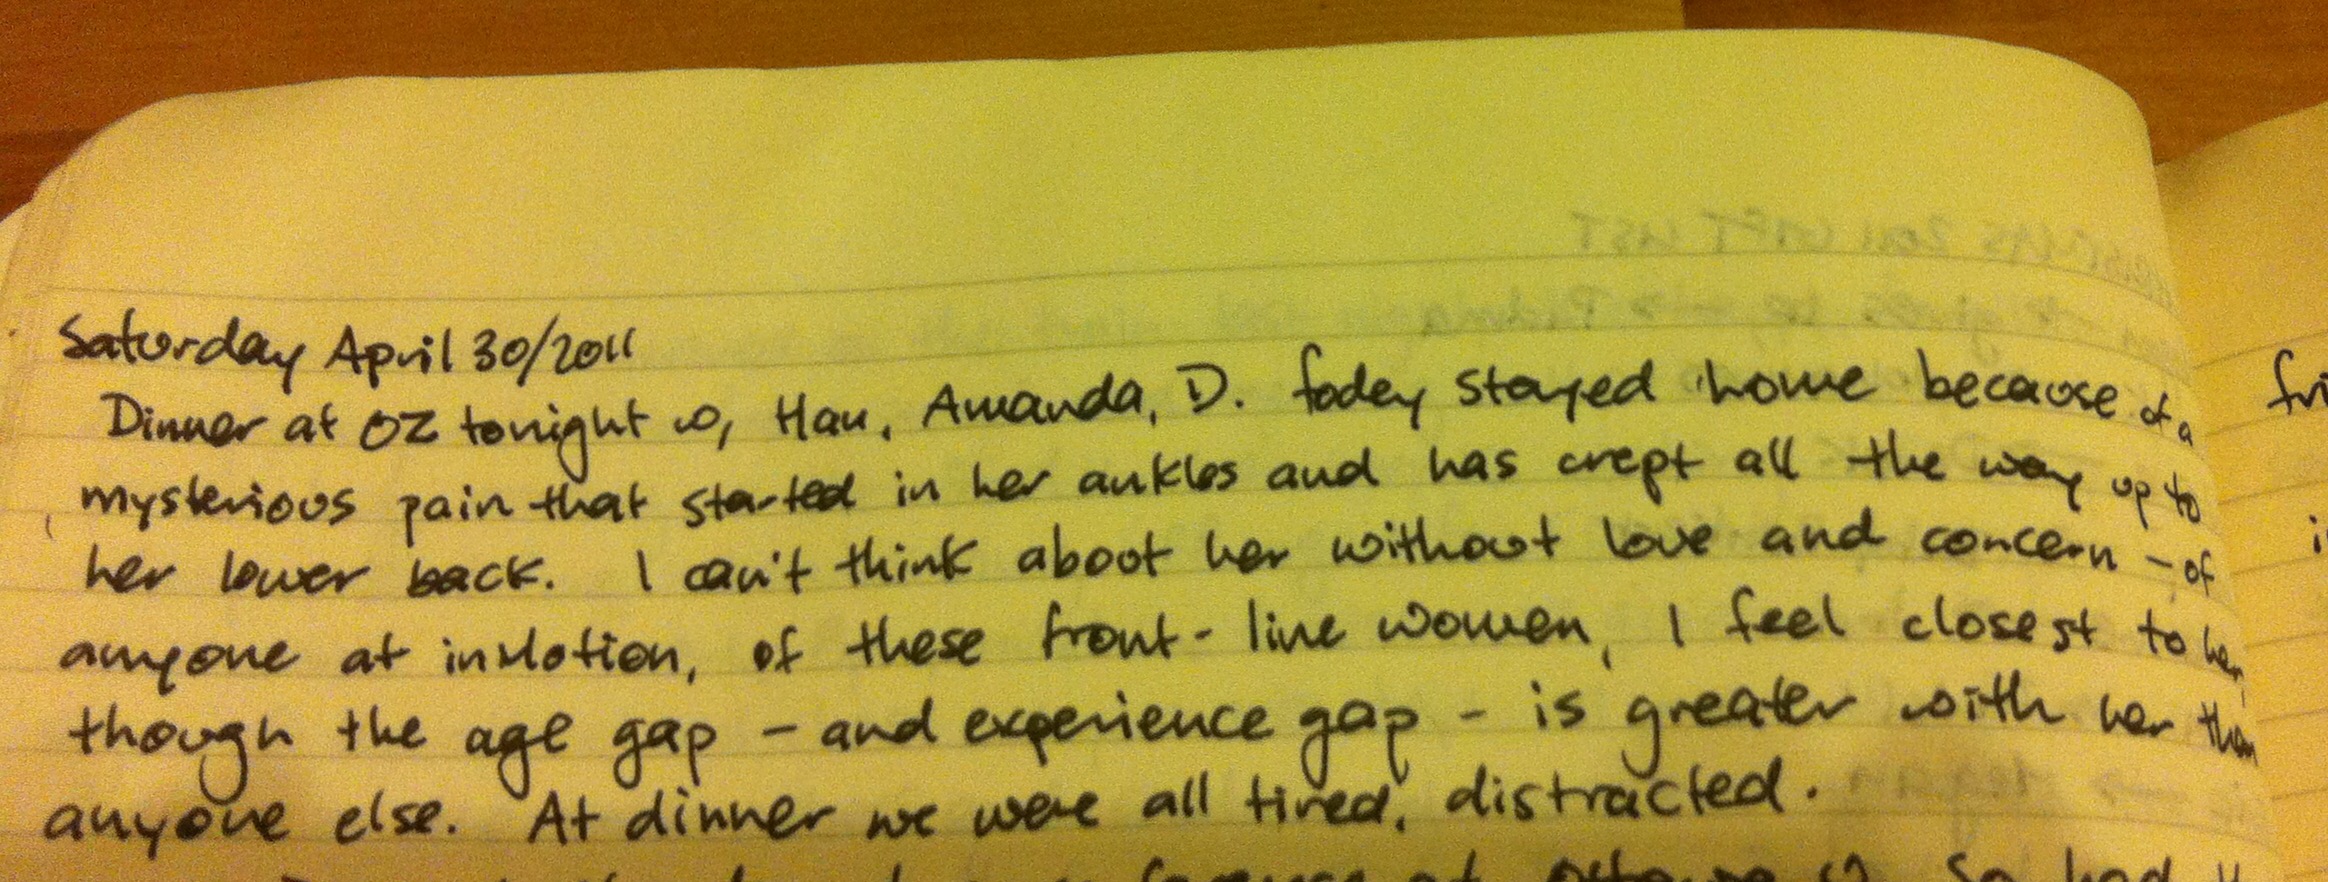 Saturday April 30/2011
Dinner at OZ tonight w, Han, Amanda, D. Fodey stayed home because of a
mysterious pain that started in her ankles and has crept all the way up to
her lower back. I can't think about her without love and concern - of
anyone at inMotion, of these front-line women, I feel closest to her,
though the age gap - and experience gap - is greater with her than
anyone else. At dinner we were all tired, distracted.
So had